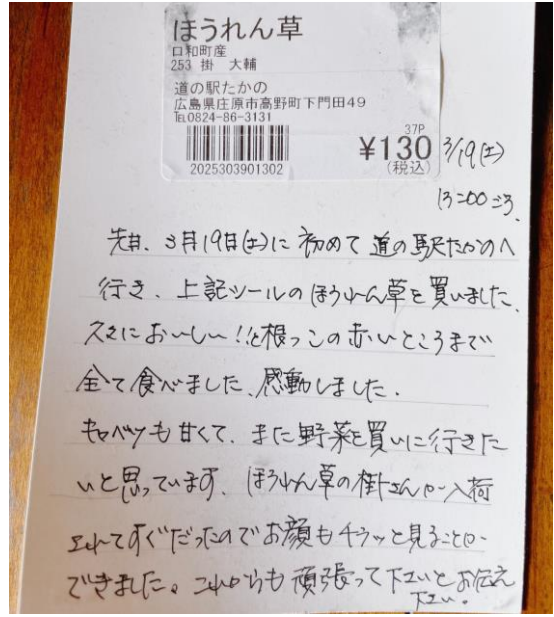 ほうれん草
口和町産
253 掛 大輔
道の駅たかの
広島県庄原市高野町下門田49
℡0824-86-3131
37P
¥130
(税込)
2025303901302
3/19(土)
13:00ごろ
先日、3月19日(土)に初めて道の駅たかのへ
行き、上記シールのほうれん草を買いました。
久々においしい!と根っこの赤いところまで
全て食べました、感動しました。
キャベツも甘くて、また野菜を買いに行きた
いと思っています。ほうれん草の掛さんが入荷
されてすぐだったのでお顔もチラッと見ることが
できました。これからも頑張って下さいとお伝え
下さい。